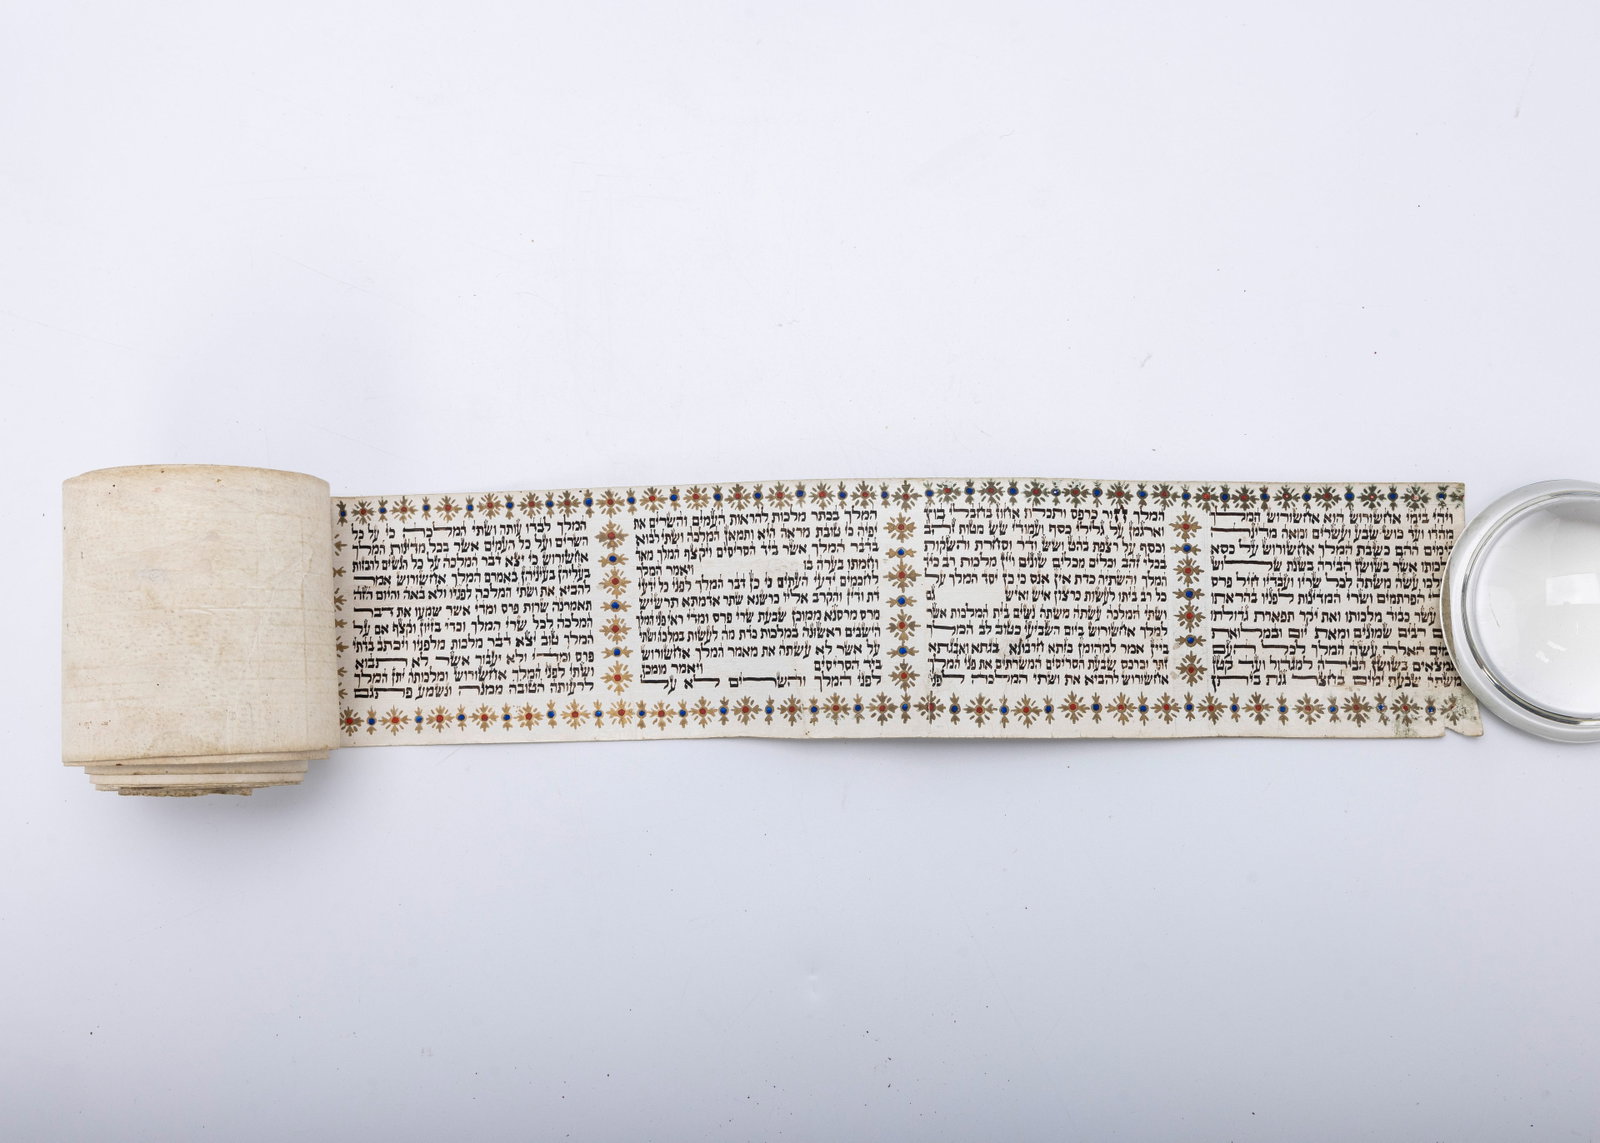 ויהי בימי אחשורוש הוא אחשורוש המלך
מהדו ועד כוש שבע ועשרים ומאה מדינה
בימים ההם כשבת המלך אחשורוש על כסא
מלכותו אשר בשושן הבירה בשנת שלוש
למלכו עשה משתה לכל שריו ועבדיו חיל פרס
ומדי הפרתמים ושרי המדינות לפניו בהראתו
את עשר כבוד מלכותו ואת יקר תפארת גדולתו
ימים רבים שמונים ומאת יום ובמלואת
הימים האלה עשה המלך לכל העם
הנמצאים בשושן הבירה למגדול ועד קטן
משתה שבעת ימים בחצר גנת ביתן
המלך חור כרפס ותכלת אחוז בחבלי בוץ
וארגמן על גלילי כסף ועמודי שש מטות זהב
וכסף על רצפת בהט ושש ודר וסחרת והשקות
בכלי זהב וכלים מכלים שונים ויין מלכות רב כיד
המלך והשתיה כדת אין אנס כי כן יסד המלך על
כל רב ביתו לעשות כרצון איש ואיש גם
ושתי המלכה עשתה משתה נשים בית המלכות אשר
למלך אחשורוש ביום השביעי כטוב לב המלך
ביין אמר למהומן בזתא חרבונא בגתא ואבגתא
זתר וכרכס שבעת הסריסים המשרתים את פני המלך
אחשורוש להביא את ושתי המלכה לפני
המלך בכתר מלכות להראות העמים והשרים את
יפיה כי טובת מראה היא ותמאן המלכה ושתי לבוא
בדבר המלך אשר ביד הסריסים ויקצף המלך מאד
וחמתו בערה בו ויאמר המלך
לחכמים ידעי העתים כי כן דבר המלך לפני כל ידעי
דת ודין והקרב אליו כרשנא שתר אדמתא תרשיש
מרס מרסנא ממוכן שבעת שרי פרס ומדי ראי פני המלך
הישבים ראשונה במלכות כדת מה לעשות במלכה ושתי
על אשר לא עשתה את מאמר המלך אחשורוש
ביד הסריסים ויאמר מומכן
לפני המלך והשרים לא על
המלך לבדו עותה ושתי המלכה כי על כל
השרים ועל כל העמים אשר בכל מדינות המלך
אחשורוש כי יצא דבר המלכה על כל הנשים להבזות
בעליהן בעיניהן באמרם המלך אחשורוש אמר
להביא את ושתי המלכה לפניו ולא באה והיום הזה
תאמרנה שרות פרס ומדי אשר שמעו את דבר
המלכה לכל שרי המלך וכדי בזיון וקצף אם על
המלך טוב יצא דבר מלכות מלפניו ויכתב בדתי
פרס ומדי ולא יעבור אשר לא תבוא
ושתי לפני המלך אחשורוש ומלכותה יתן המלך
לרעותה הטובה ממנה ונשמע פתגם